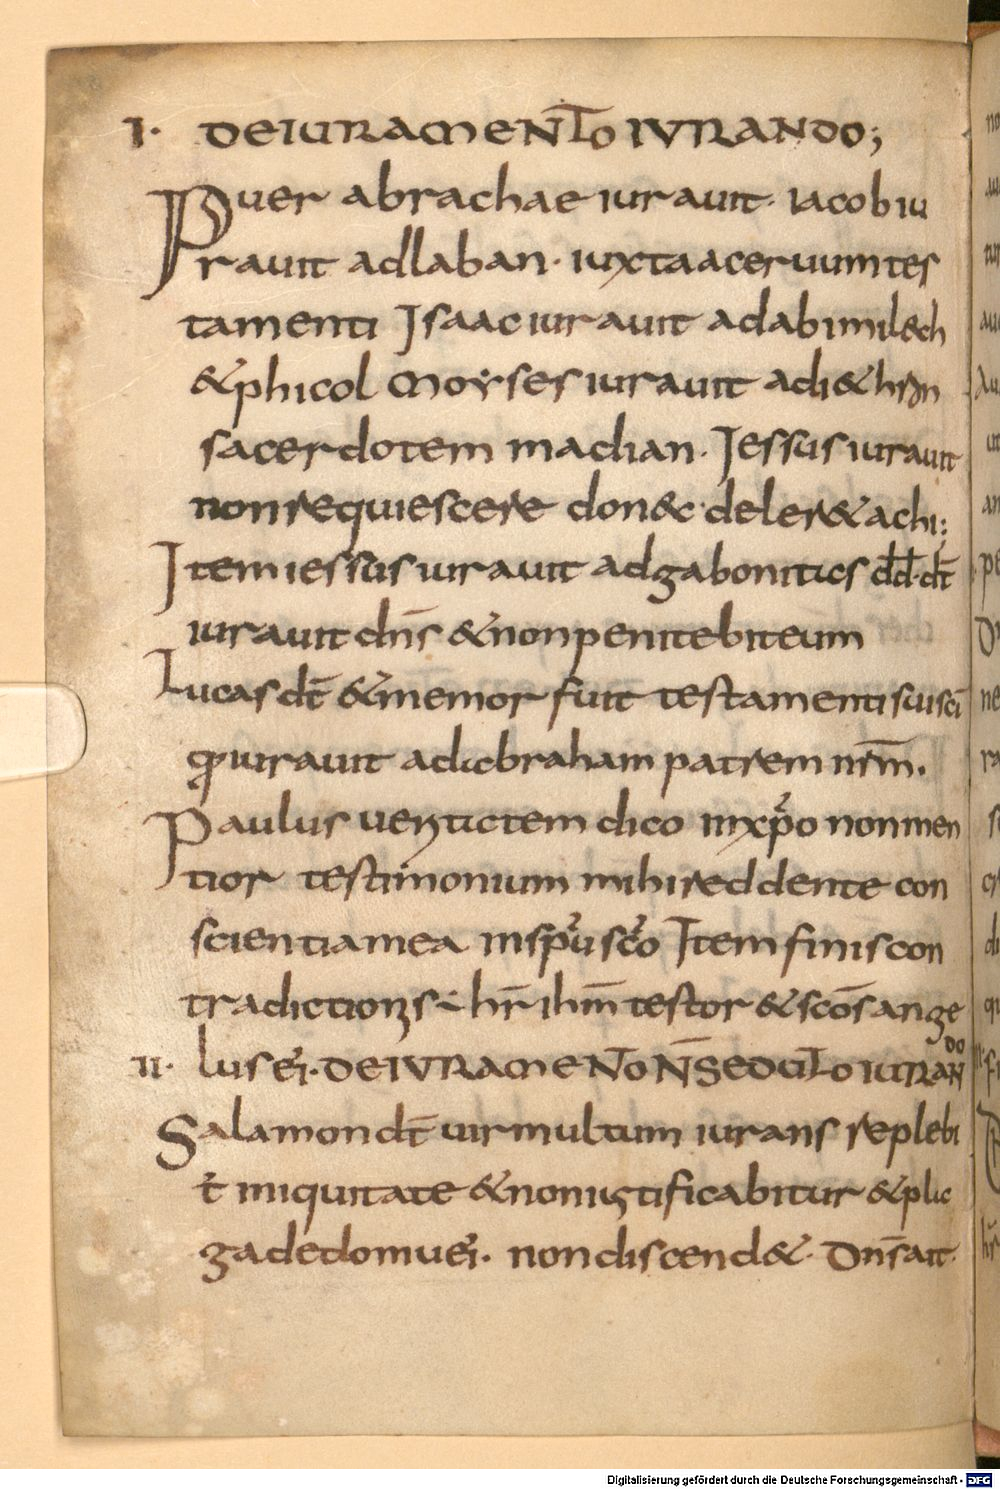 I. DE IURAMENTO IVRANDO;
Puer abrachae iurauit. iacob iu
rauit ad laban. iuxta aceruum tes
tamenti Isaac iurauit ad abimilech
& phicol Moyses iurauit ad i&hron
sacerdotem madian. Iessus iurauit
non requiescere don&c deler& achi;
Item iessus iurauit ad gabonitics dd. dt̄
iurauit dn̄s & non penitebit eum
Lucas dt̄ & memor fuit testamenti sui sc̄i
qđ iurauit ad abraham patrem nr̄m.
Paulus ueritatem dico in xp̄o non men
tior testimonium mihi reddente con
scientia mea in sp̄u sc̄o Item finis con
tradictionis ÷ hr̄ ihm̄ testor & scōs ange
lus ei. II. DE IVRAMENTO N̄ SEDULO IURANDO
Salamon dt̄ uir multum iurans replebi
t̄ iniquitate & non iustificabitur & plic
ga de domu ei. non discend&. Dn̄s ait.
Digitalisierung gefördert durch die Deutsche Forschungsgemeinschaft - DFG